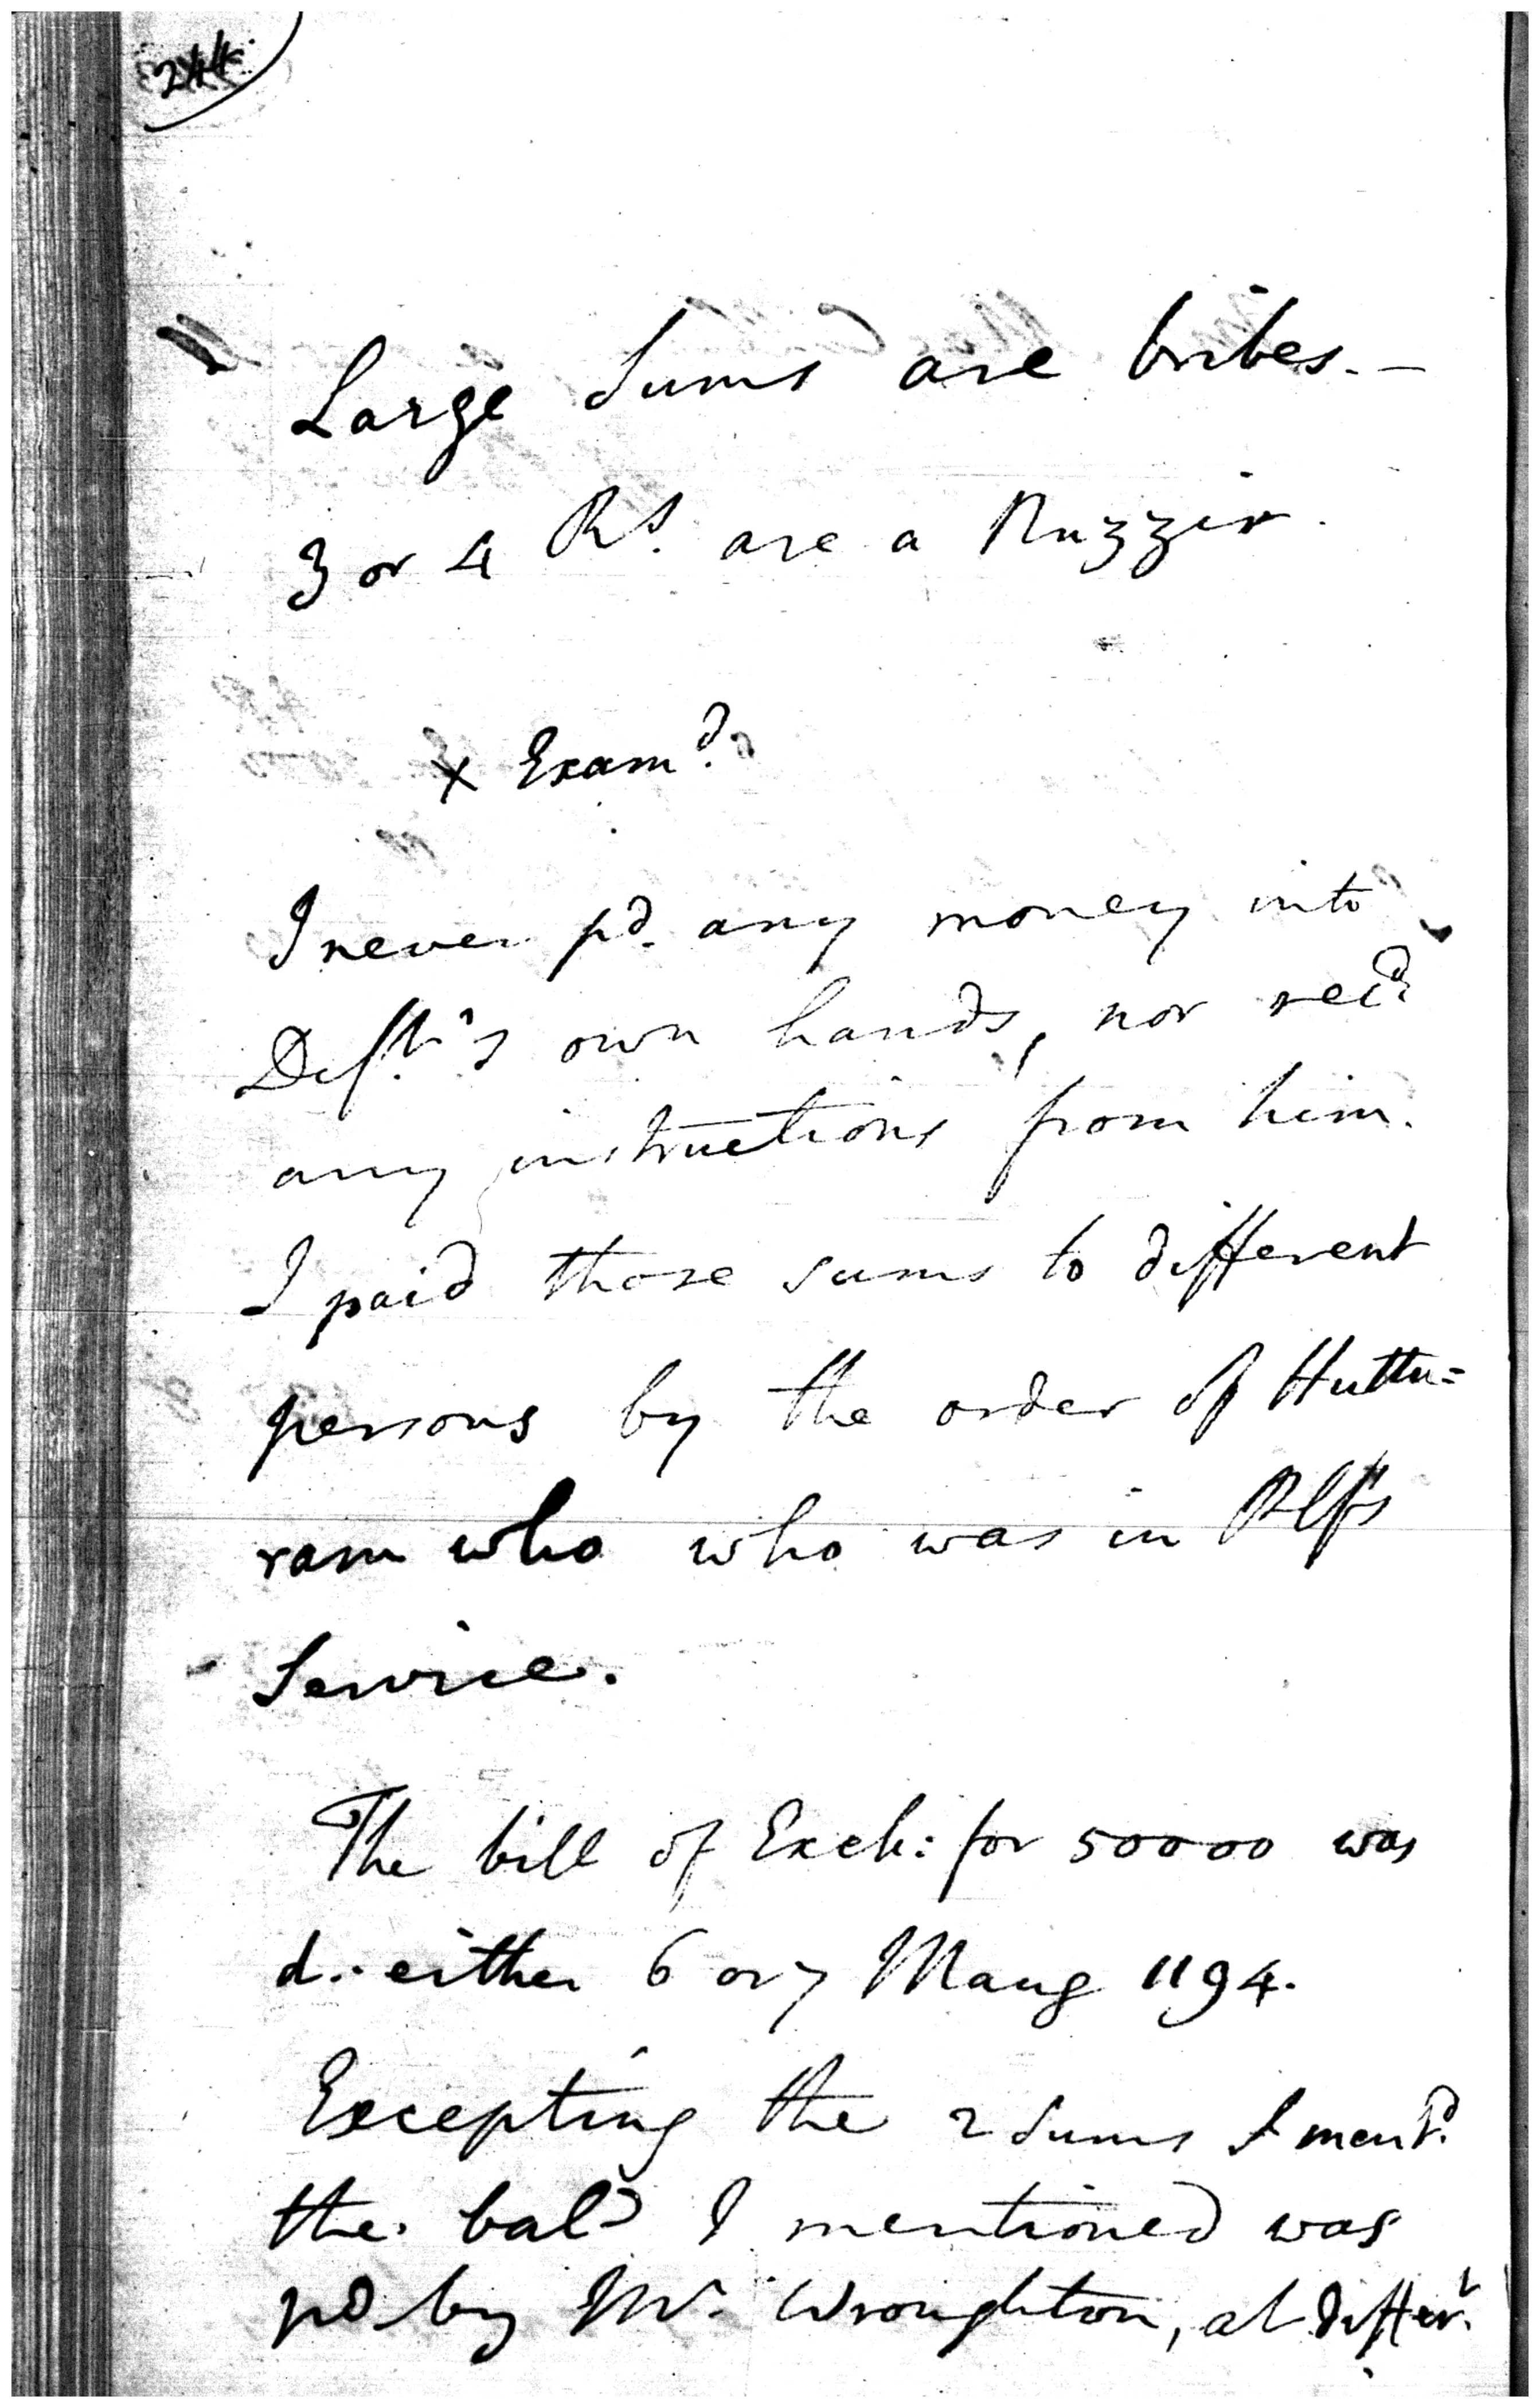 244
Large Sums are bribes.—
3 or 4 Rs. are a Nuzzir.
x Examd.
I never pd. any money into
Deft's own hands, nor recd.
any instructions from him.
I paid those sums to different
persons by the order of Huttu=
ram who who was in Plf's
Service.
The bill of Exch: for 50000 was
d. either 6 or 7 Maug 1194.
Excepting the 2 Sums I mentd.
the bal? I mentioned was
pd by Mr. Wroughton, at differt.